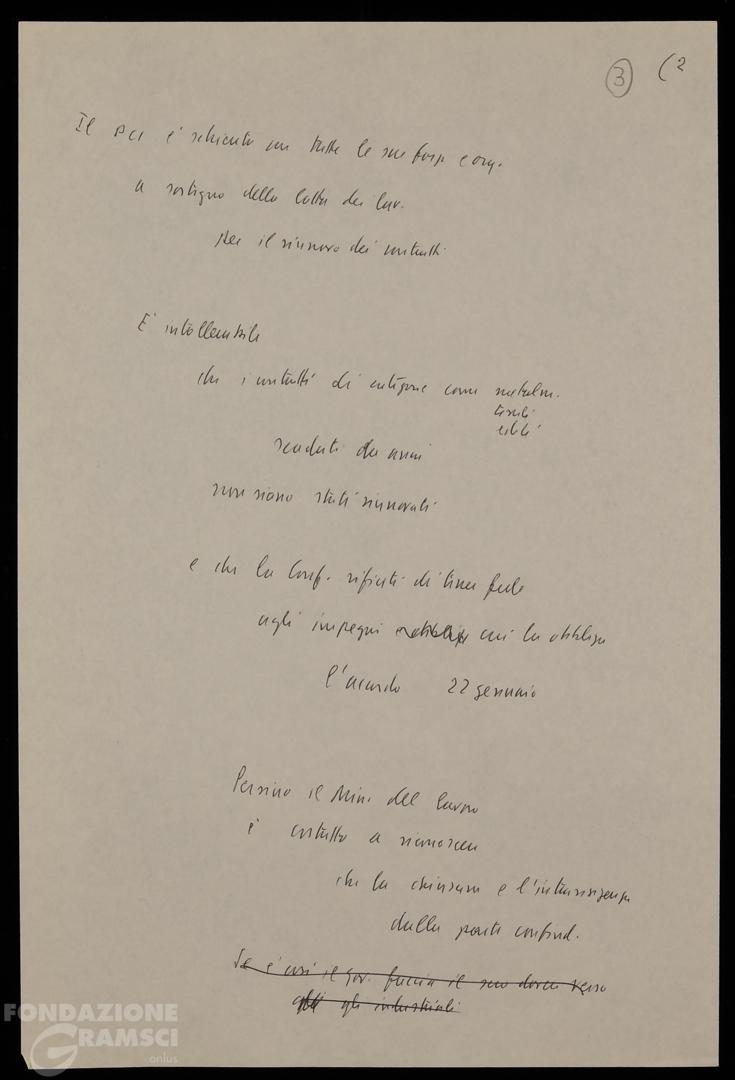 3 (2
Il PCI è schierato con tutte le sue forze e org.
a sostegno della lotta dei lav.
per il rinnovo dei contratti
E' intollerabile
che i contratti di categorie come metalm.
tessili
edili
scaduti da anni
non siano stati rinnovati
e che la Conf. rifiuti di tener fede
agli impegni cui la obbliga
l'accordo 22 gennaio
Persino il Min. del lavoro
è costretto a riconoscere
che la chiusura e l'intransigenza
dalla parte confind.
Se è così il gov. faccia il suo dovere verso
gli industriali
FONDAZIONE
GRAMSCI
onlus